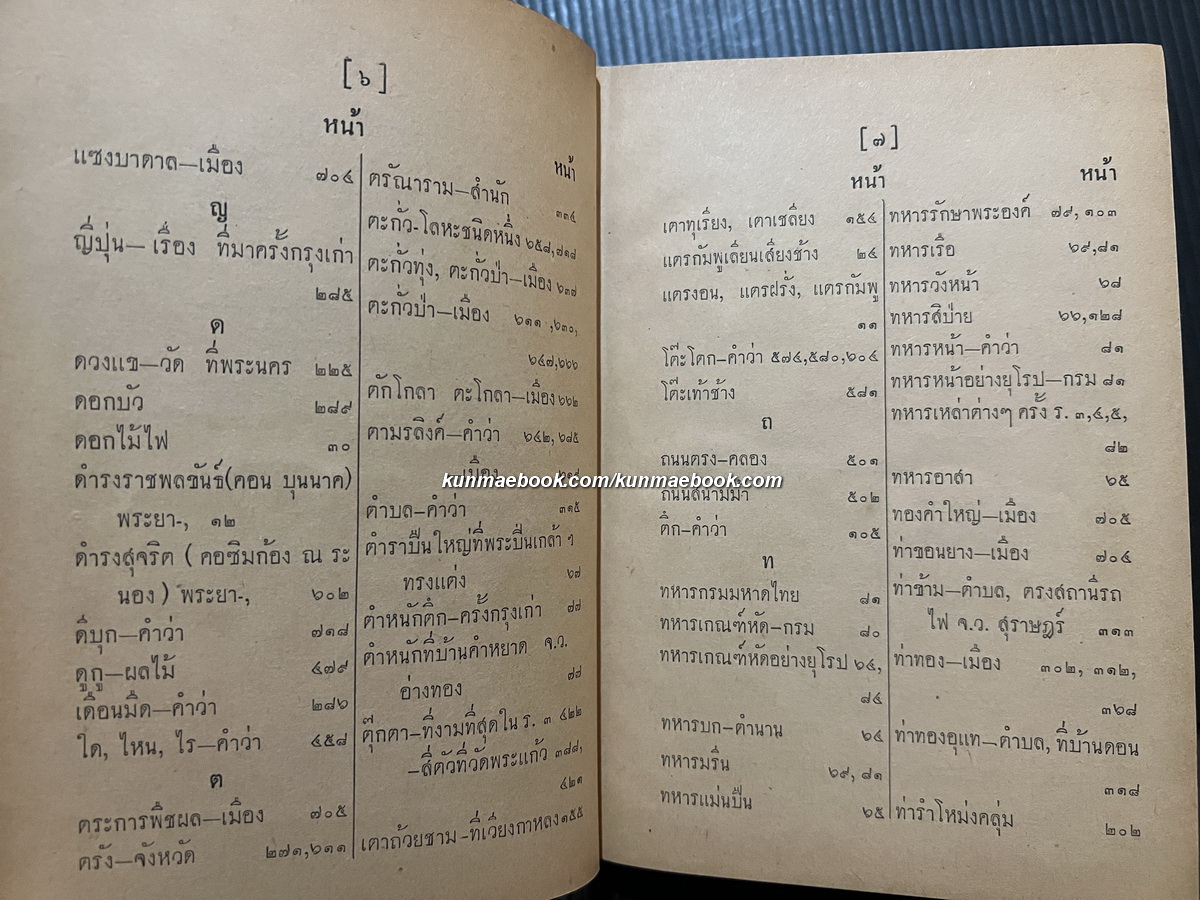 [๖]
หน้า
แซงบาดาล—เมือง ๗๐๔
ญ
ญี่ปุ่น—เรื่อง ที่มาครั้งกรุงเก่า
๒๘๕
ด
ดวงแข—วัด ที่พระนคร ๒๒๕
ดอกบัว ๒๘๙
ดอกไม้ไฟ ๓๐
ดำรงราชพลขันธ์(คอน บุนนาค)
พระยา-, ๑๒
ดำรงสุจริต (คอซิมก้อง ณ ระ
นอง) พระยา-, ๖๐๒
ดีบุก—คำว่า ๗๑๘
ดูกู—ผลไม้ ๔๗๙
เดือนมืด—คำว่า ๒๘๖
ใด, ไหน, ไร—คำว่า ๔๕๘
ต
ตระการพืชผล—เมือง ๗๐๕
ตรัง—จังหวัด ๒๗๑,๖๑๑
หน้า
ตรัณาราม—สำนัก ๓๓๔
ตะกั่ว-โลหะชนิดหนึ่ง ๖๕๘,๗๑๘
ตะกั่วทุ่ง, ตะกั่วป่า—เมือง ๖๓๗
ตะกั่วป่า—เมือง ๖๑๑ ,๖๓๐,
๖๔๗,๖๖๖
ตักโกลา ตะโกลา—เมือง ๖๖๒
ตามรลิงค์—คำว่า ๖๔๒, ๖๘๕
—เมือง
ตำบล—คำว่า ๓๑๕
ตำราปืนใหญ่ที่พระปิ่นเกล้า ฯ
ทรงแต่ง ๖๗
ตำหนักตึก—ครั้งกรุงเก่า ๗๗
ตำหนักที่บ้านคำหยาด จ.ว.
อ่างทอง ๗๗
ตุ๊กตา—ที่งามที่สุดใน ร. ๓ ๔๒๒
—สี่ตัวที่วัดพระแก้ว ๓๘๘,
๔๒๑
เตาถ้วยชาม -ที่เวียงกาหลง ๑๕๕
[๗]
หน้า
เตาทุเรียง, เตาเชลียง ๑๕๔
แตรกัมพูเลียนเสียงช้าง ๒๔
แตรงอน, แตรฝรั่ง, แตรกัมพู
๑๑
โต๊ะโตก—คำว่า ๕๗๔,๕๘๐,๖๐๔
โต๊ะเท้าช้าง ๕๘๑
ถ
ถนนตรง—คลอง ๕๐๑
ถนนสนามม้า ๕๐๒
ถึก—คำว่า ๑๐๕
ท
ทหารกรมมหาดไทย ๘๑
ทหารเกณฑ์หัด—กรม ๘๐
ทหารเกณฑ์หัดอย่างยุโรป ๖๔,
๘๔
ทหารบก—ตำนาน ๖๔
ทหารมรีน ๖๙, ๘๑
ทหารแม่นปืน ๖๕
หน้า
ทหารรักษาพระองค์ ๗๙, ๑๐๓
ทหารเรือ ๖๙,๘๑
ทหารวังหน้า ๖๘
ทหารสิป่าย ๖๖,๑๒๘
ทหารหน้า—คำว่า ๘๑
ทหารหน้าอย่างยุโรป—กรม ๘๑
ทหารเหล่าต่างๆ ครั้ง ร. ๓,๔,๕,
๘๒
ทหารอาสา ๖๕
ทองคำใหญ่—เมือง ๗๐๕
ท่าขอนยาง—เมือง ๗๐๔
ท่าข้าม—ตำบล, ตรงสถานีรถ
ไฟ จ.ว. สุราษฎร์ ๓๑๓
ท่าทอง—เมือง ๓๐๒, ๓๑๒,
๓๖๘
ท่าทองอุแท—ตำบล, ที่บ้านดอน
๓๑๘
ท่ารำโหม่งคลุ่ม ๒๐๒
kunmaebook.com/kunmaebook.com